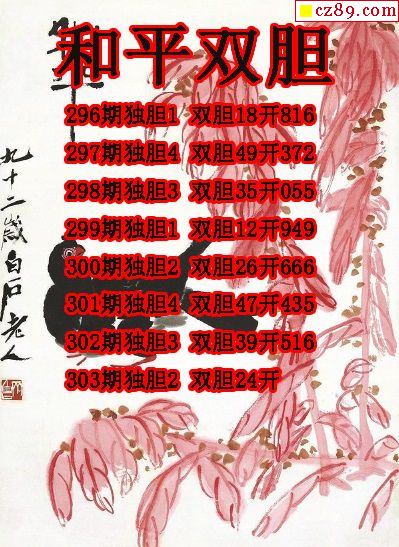 cz89.com
和平双胆
296期独胆1 双胆18开816
297期独胆4 双胆49开372
298期独胆3 双胆35开055
299期独胆1 双胆12开949
300期独胆2 双胆26开666
301期独胆4 双胆47开435
302期独胆3 双胆39开516
303期独胆2 双胆24开
九十二岁白石老人